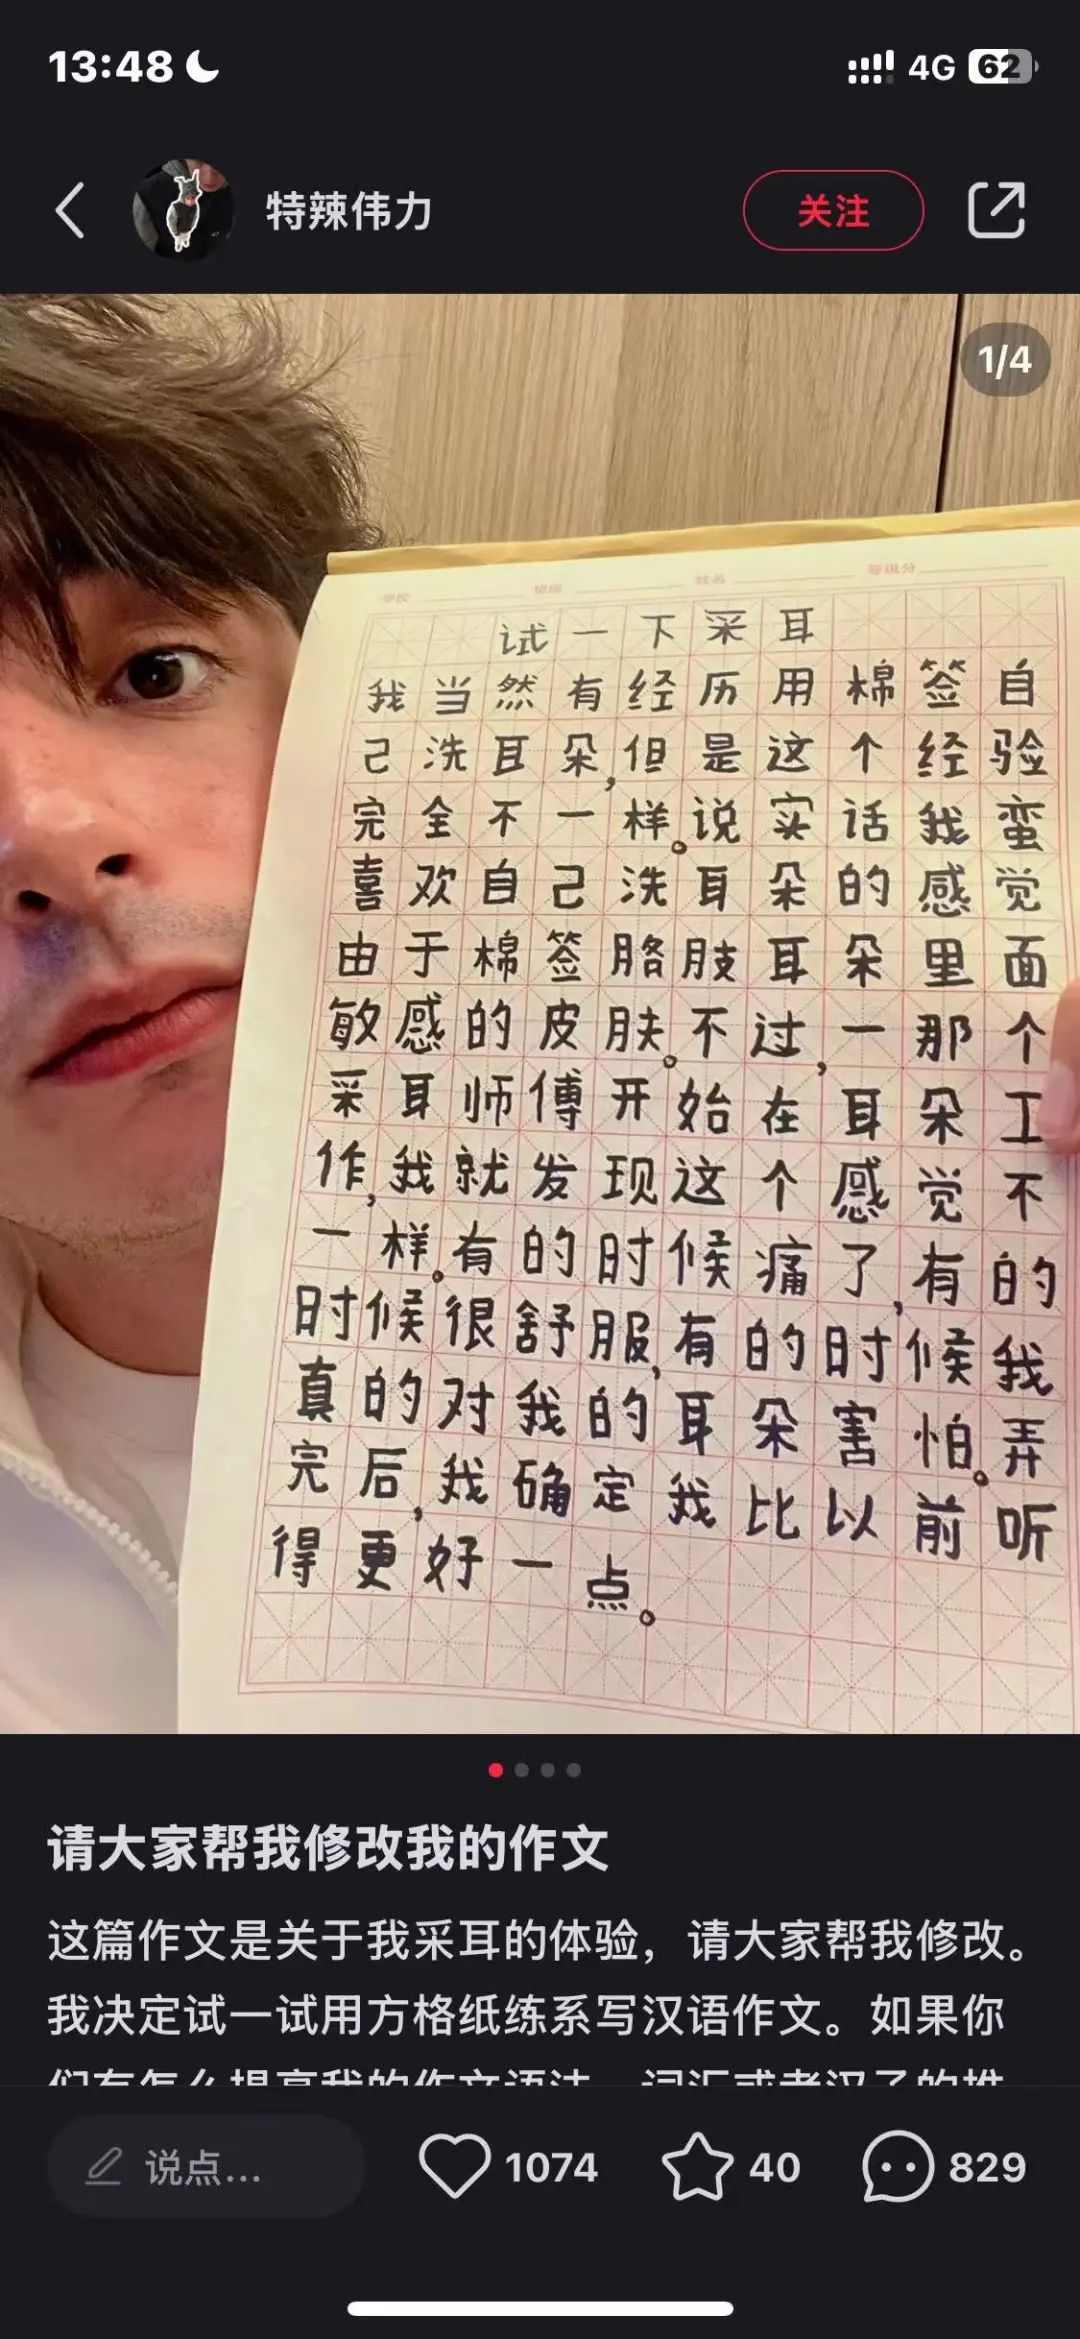 13:48
4G 62
特辣伟力
关注
1/4
学校 班级 姓名 等级分
试一下采耳
我当然有经历用棉签自
己洗耳朵,但是这个经验
完全不一样。说实话我蛮
喜欢自己洗耳朵的感觉
由于棉签胳肢耳朵里面
敏感的皮肤。不过,一那个
采耳师傅开始在耳朵工
作,我就发现这个感觉不
一样。有的时候痛了,有的
时候很舒服,有的时候我
真的对我的耳朵害怕。弄
完后,我确定我比以前听
得更好一点。
请大家帮我修改我的作文
这篇作文是关于我采耳的体验，请大家帮我修改。
我决定试一试用方格纸练系写汉语作文。如果你
们有怎么提高我的作文语法、词汇或者汉子的推
说点...
1074
40
829